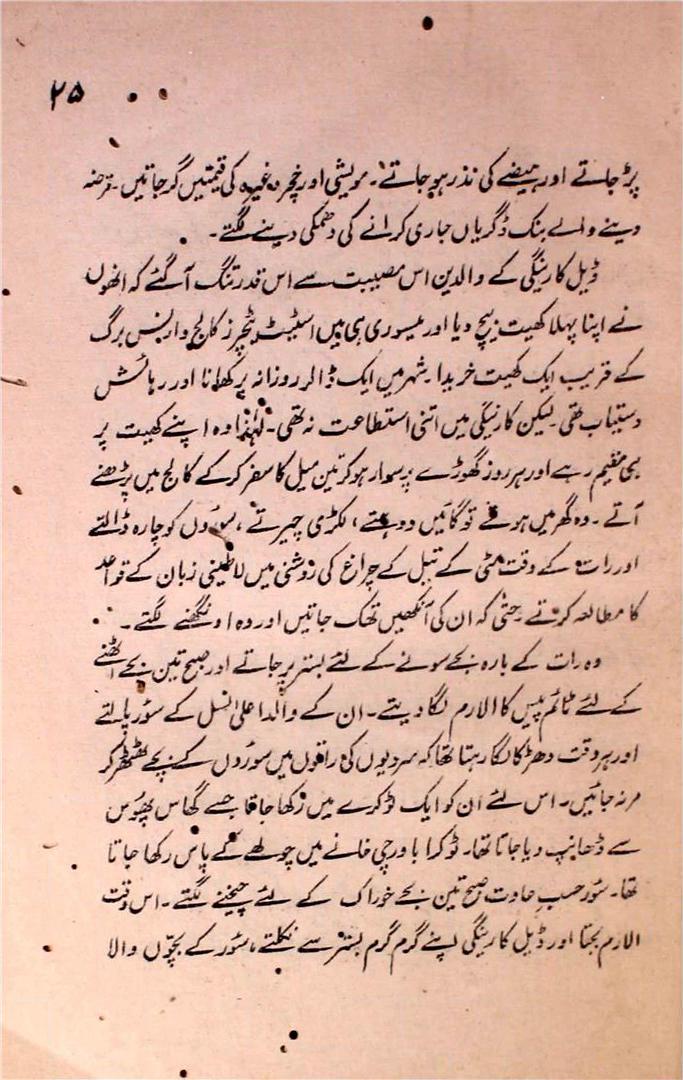 ۲۵
پڑ جاتے اور ہیضے کی نذر ہو جاتے۔ مویشی اور خچر وغیرہ کی قیمتیں گر جاتیں۔ قرضہ
دینے والے بنک ڈگریاں جاری کرانے کی دھمکی دینے لگتے۔
ڈیل کارنیگی کے والدین اس مصیبت سے اس قدر تنگ آ گئے کہ انھوں
نے اپنا پہلا کھیت بیچ دیا اور میسوری ہی میں اسٹیٹ ٹیچرز کالج وارنس برگ
کے قریب ایک کھیت خریدا۔ شہر میں ایک ڈالر روزانہ پر کھانا اور رہائش
دستیاب تھی لیکن کارنیگی میں اتنی استطاعت نہ تھی۔ لہٰذا وہ اپنے کھیت پر
ہی مقیم رہے اور ہر روز گھوڑے پر سوار ہو کر تین میل کا سفر کر کے کالج میں پڑھنے
آتے۔ وہ گھر میں ہوتے تو گائیں دوہتے، لکڑی چیرتے، سوروں کو چارہ ڈالتے
اور رات کے وقت مٹی کے تیل کے چراغ کی روشنی میں لاطینی زبان کے قواعد
کا مطالعہ کرتے حتیٰ کہ ان کی آنکھیں تھک جاتیں اور وہ اونگھنے لگتے۔
وہ رات کے بارہ بجے سونے کے لئے بستر پر جاتے اور صبح تین بجے اٹھنے
کے لئے ٹائم پیس کا الارم لگا دیتے۔ ان کے والد اعلیٰ نسل کے سؤر پالتے
اور ہر وقت دھڑکا لگا رہتا تھا کہ سردیوں کی راتوں میں سوروں کے بچے ٹھٹھر کر
مر نہ جائیں۔ اس لئے ان کو ایک ٹوکرے میں رکھا جاتا جسے گھاس پھوس
سے ڈھانپ دیا جاتا تھا۔ ٹوکرا باورچی خانے میں چولھے کے پاس رکھا جاتا
تھا۔ سؤر حسبِ عادت صبح تین بجے خوراک کے لئے چیخنے لگتے۔ اس وقت
الارم بجتا اور ڈیل کارنیگی اپنے گرم گرم بستر سے نکلتے، سؤر کے بچوں والا